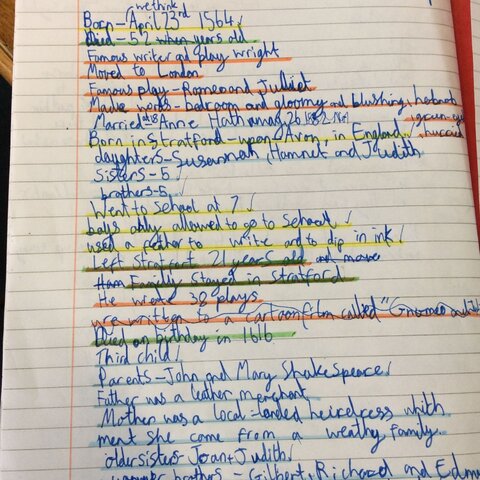 we think
Born - April 23rd 1564 ✓
Died - 52 when years old
Famous writer and play wright
Moved to London
Famous play - Romeo and Julliet
Made words - bedroom and gloomy and blushing, hobnob
green-eye
Married at 18 Anne Hathaway 26 1582 Nov
Born in Stratford-upon Avon, in England ✓
hurried
daughters - Susannah, Hamnet and Judith
Sisters - 5
brothers - 5
Went to School at 7 ✓
boys only allowed to go to School ✓
used a feather to write and to dip in ink ✓
Left Stratfort 21 years old and move
Ham Family Stayed in Stratford
He wrote 38 plays
are written to a cartoon film called "Gnomeo and
Died on birthday in 1616
Third child ✓
Parents - John and Mary Shakespeare ✓
Father was a leather merchant
Mother was a local-landed heirdress which
ment she come from a weathy family.
older sisters - Joan + Judith ✓
brothers - Gilbert + Richard and Edm